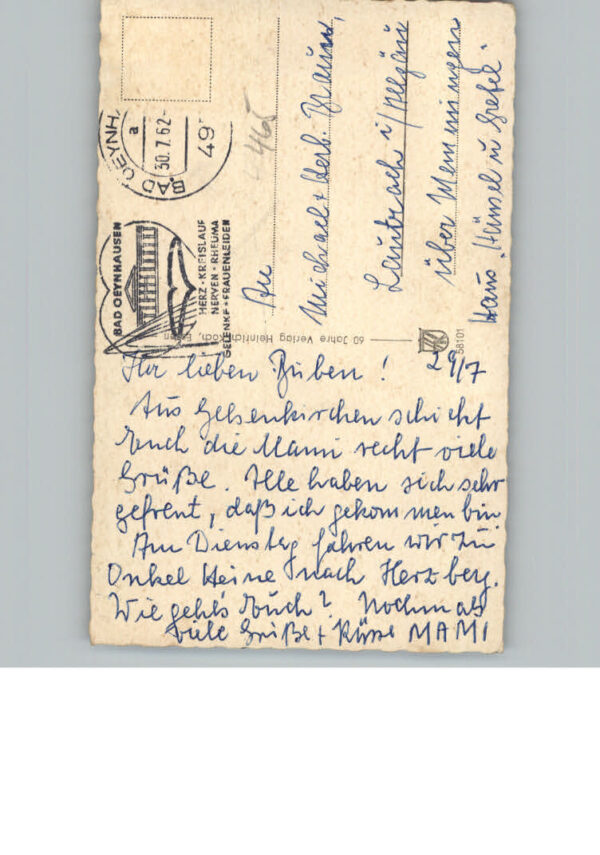 Ihr lieben Buben! 29/7
Aus Gelsenkirchen schickt
Euch die Mami recht viele
Grüße. Alle haben sich sehr
gefreut, daß ich gekommen bin.
Am Dienstag fahren wir zu
Onkel Heine nach Herzberg.
Wie geht's Euch? Nochmals
viele Grüße + Küsse MAMI
An
Michael + Herb. Braun,
Lautrach i/Allgäu
über Memmingen
Haus "Hänsel u Gretel"
465
BAD OEYNH
a
30.7.62-
49
BAD OEYNHAUSEN
HERZ · KREISLAUF
NERVEN · RHEUMA
GELENKE · FRAUENLEIDEN
60 Jahre Verlag Heinrich Koch, Essen
58101